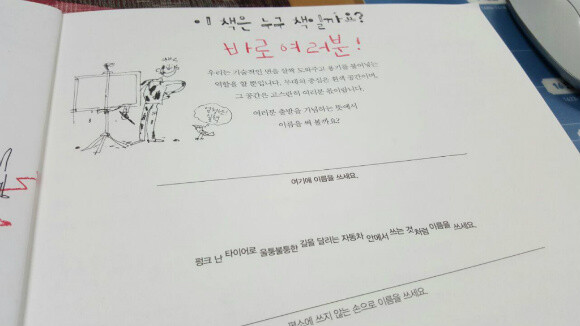 이 책은 누구 책일까요?
바로 여러분!
우리는 기술적인 면을 살짝 도와주고 용기를 불어넣는
역할을 할 뿐입니다. 무대의 중심은 흰색 공간이며,
그 공간은 고스란히 여러분 몫이랍니다.
여러분 출발을 기념하는 뜻에서
이름을 써 볼까요?
여기에 이름을 쓰세요.
펑크 난 타이어로 울퉁불퉁한 길을 달리는 자동차 안에서 쓰는 것처럼 이름을 쓰세요.
평소에 쓰지 않는 손으로 이름을 쓰세요.